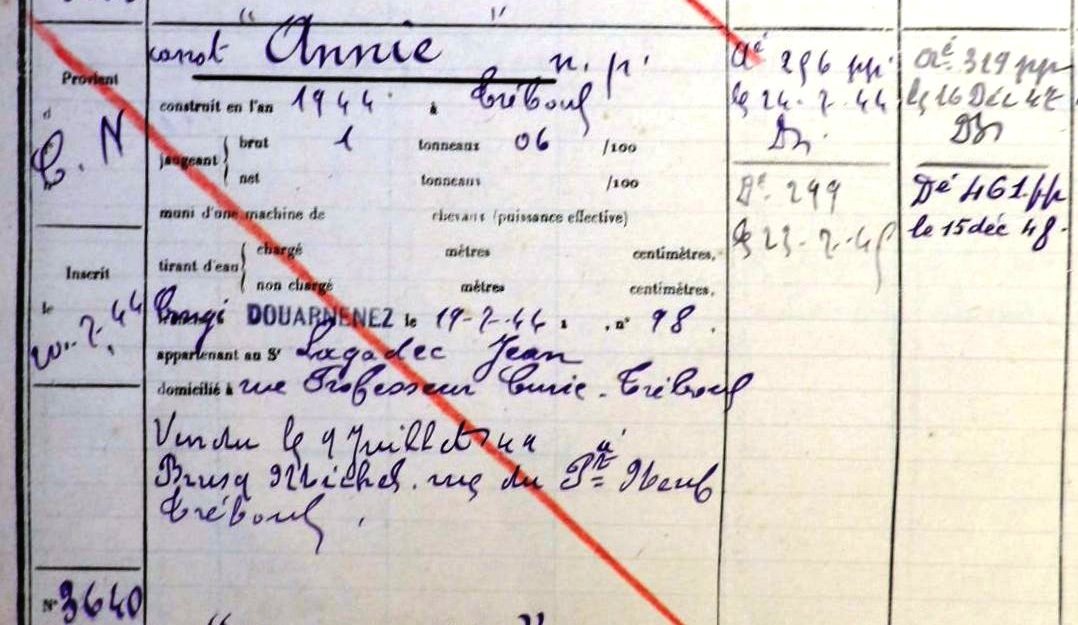 " "
canot Annie n. p.
Provient
d
C. N
construit en l'an 1944 à Tréboul
jaugeant { brut 1 tonneaux 06 /100
net tonneaux /100
muni d'une machine de chevaux (puissance effective)
tirant d'eau { chargé mètres centimètres.
non chargé mètres centimètres.
Inscrit
le
20-7-44
Congé DOUARNENEZ le 19-7-44 à , n° 98 .
appartenant au Sr Lagadec Jean
domicilié à rue Professeur Curie - Tréboul
Vendu le 9 Juillet 44
Brusq Michel. rue du Pt Neuf
Tréboul ,
N° 3640
" "
Aé 296 pp.
le 24-7-44
Dé 299
le 23-7-45
Aé 319 pp
le 16 Déc 47
Dé 461 pp
le 15 déc 48-